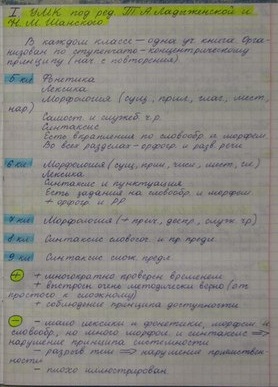 I УМК под ред. Т.А.Ладыженской и
Н.М.Шанского
В каждом классе – одна уч. книга. Орга-
низован по ступенчато-концентрическому
принципу (нач. с повторения)
5 кл. Фонетика
Лексика
Морфология (сущ., прил., глаг., мест.,
нар.)
Самост. и служеб. ч.р.
Синтаксис
Есть вкрапления по словообр. и морфем.
Во всех разделах - орфогр. и разв. речи
6 кл. Морфология (сущ., прил., числ., мест., гл.)
Лексика
Синтаксис и пунктуация
Есть задания на словообр. и морфем.
+ орфогр. и РР
7 кл. Морфология (+ прич., деепр., служ. чр.)
8 кл. Синтаксис словосоч. и пр. предл.
9 кл. Синтаксис слож. предл.
+ + многократно проверен временем
+ выстроен очень методически верно (от
простого к сложному)
+ соблюдение принципа доступности
– – мало лексики и фонетики, морфем. и
словообр., но много морфол. и синтаксис ⇒
нарушение принципа системности
– разрыв тем ⇒ нарушение преемствен-
ности
– плохо иллюстрирован